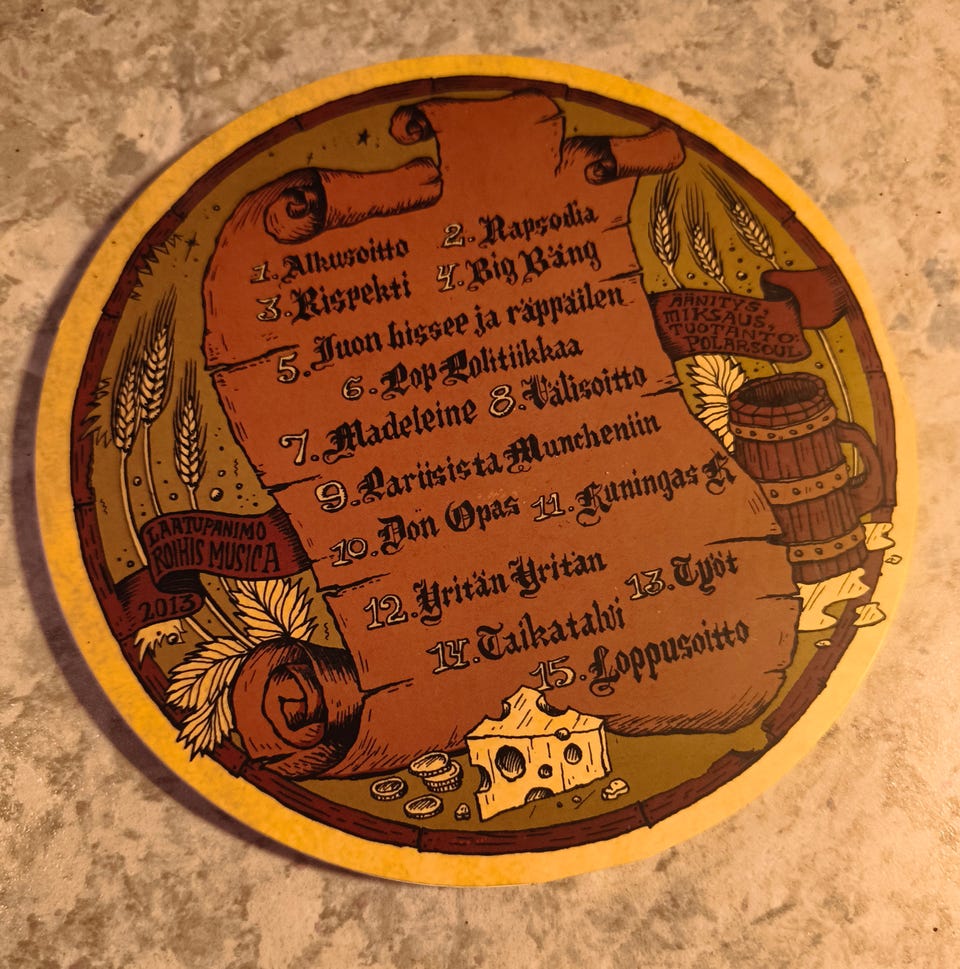 1. Alkusoitto 2. Rapsodia
3. Rispekti 4. Big Bäng
5. Juon bissee ja räppäilen
6. Pop Politiikkaa
7. Madeleine 8. Välisoitto
9. Pariisista Muncheniin
10. Don Opas 11. Kuningas K
12. Yritän Yritän
13. Työt
14. Taikatalvi
15. Loppusoitto
ÄÄNITYS,
MIKSAUS,
TUOTANTO:
POLARSOUL
LAATUPANIMO
ROIHIS MUSICA
2013